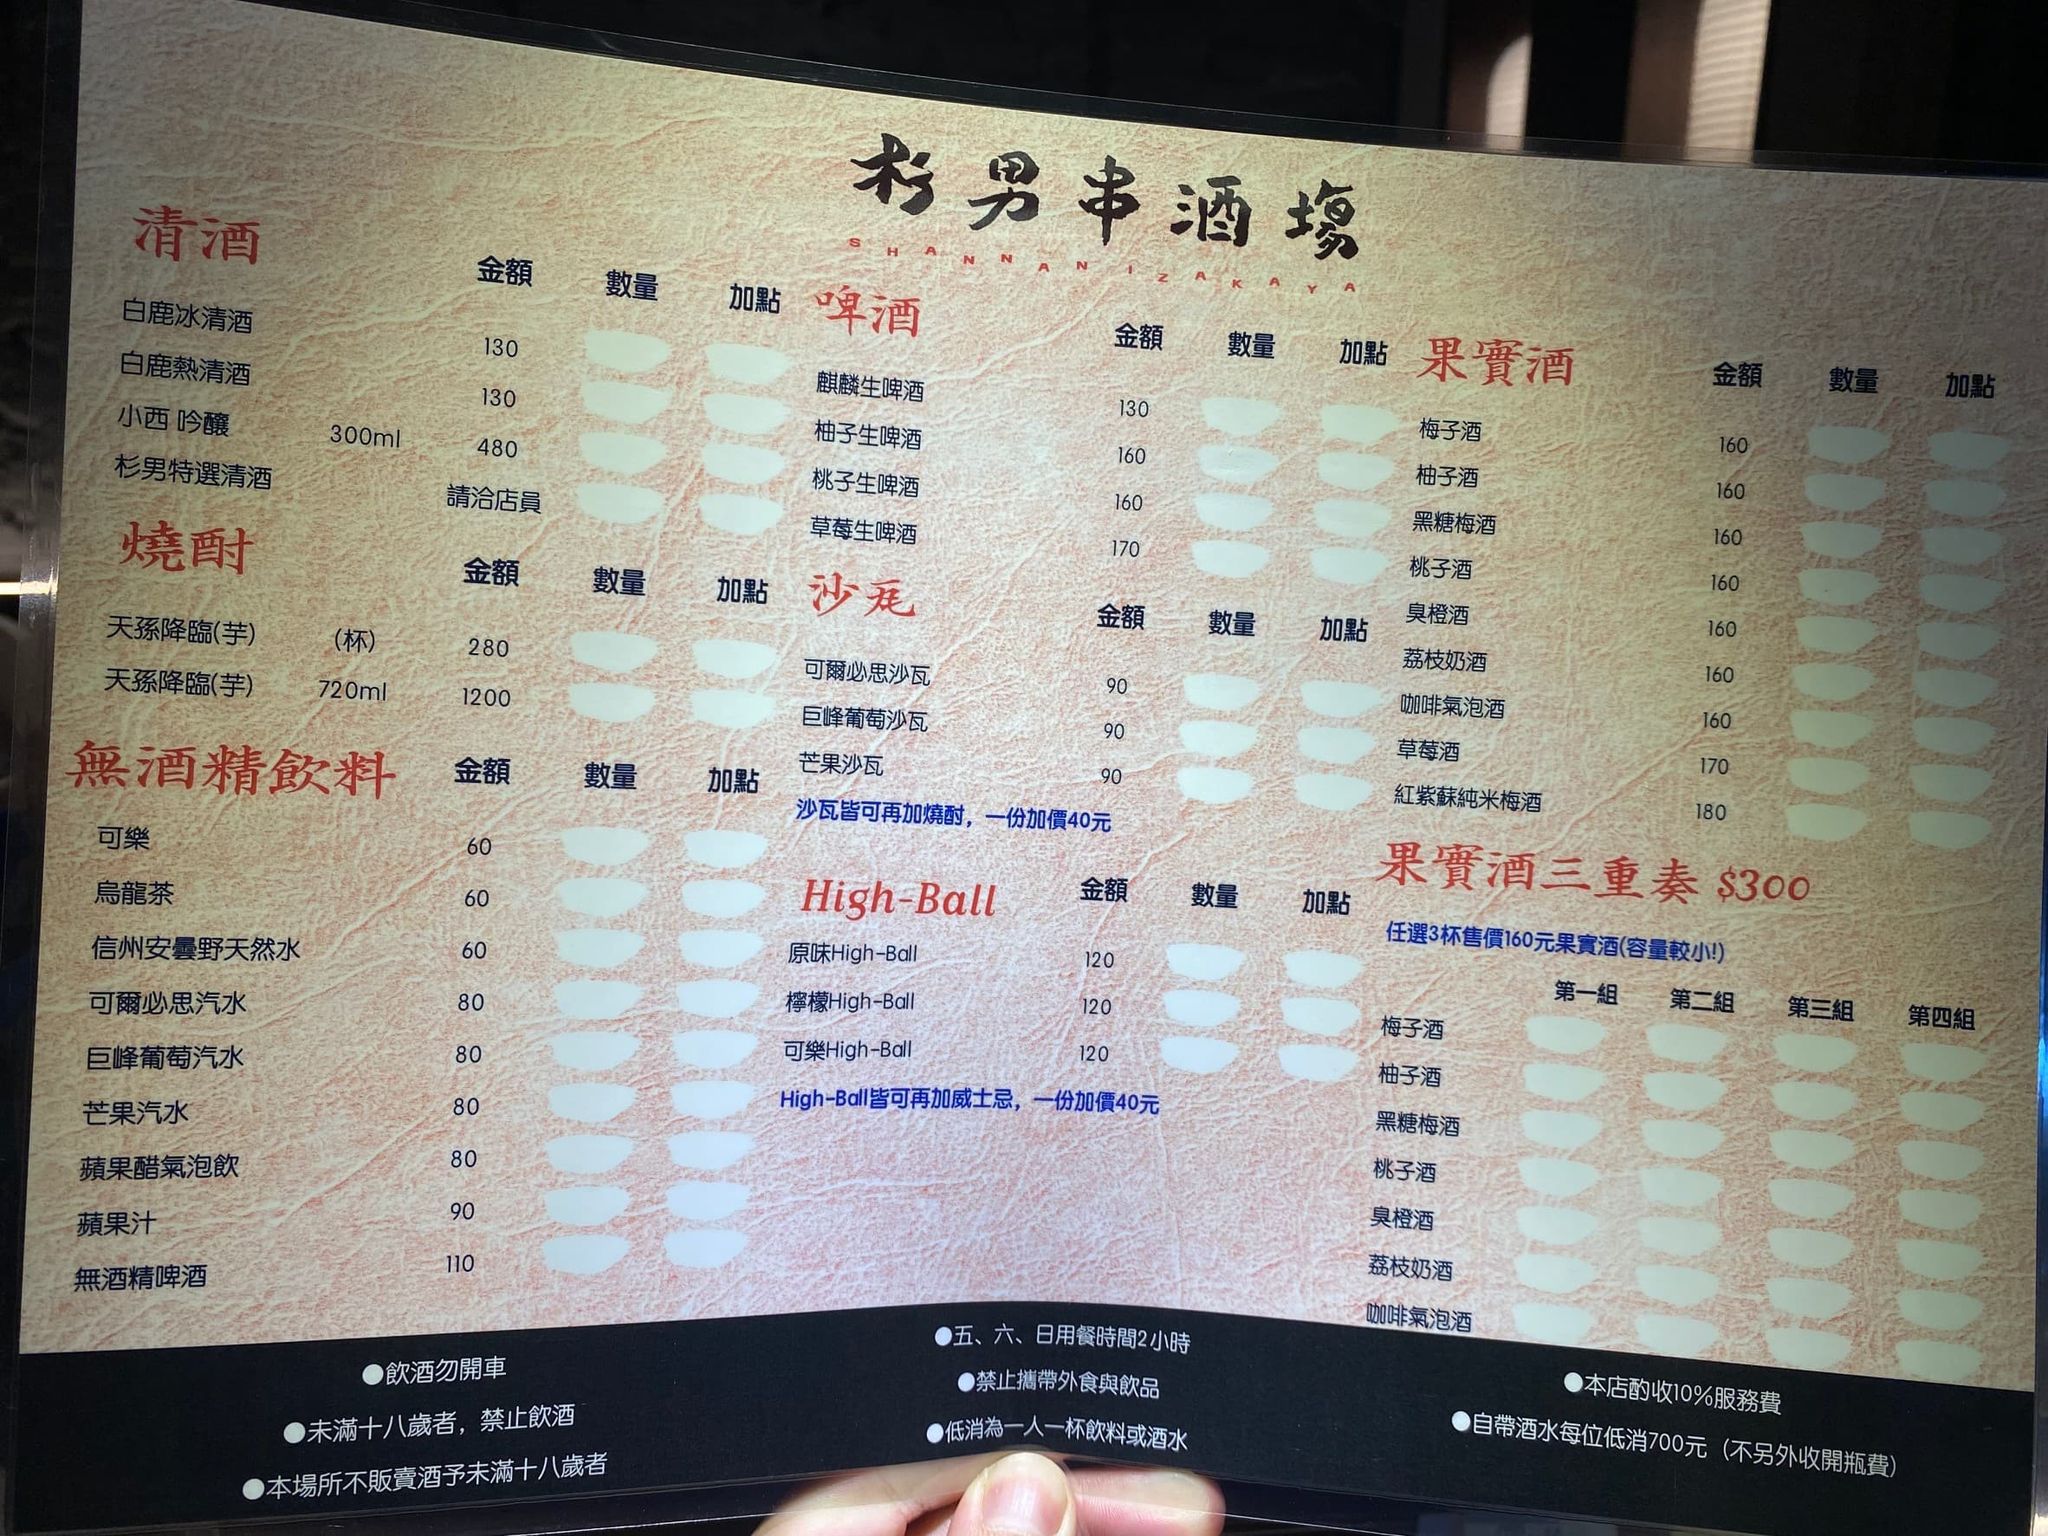 杉男串酒場
SHANNAN IZAKAYA
清酒 金額 數量 加點
白鹿冰清酒 130
白鹿熱清酒 130
小西 吟釀 300ml 480
杉男特選清酒 請洽店員
燒酎 金額 數量 加點
天孫降臨(芋) (杯) 280
天孫降臨(芋) 720ml 1200
無酒精飲料 金額 數量 加點
可樂 60
烏龍茶 60
信州安曇野天然水 60
可爾必思汽水 80
巨峰葡萄汽水 80
芒果汽水 80
蘋果醋氣泡飲 80
蘋果汁 90
無酒精啤酒 110
啤酒 金額 數量 加點
麒麟生啤酒 130
柚子生啤酒 160
桃子生啤酒 160
草莓生啤酒 170
沙瓦 金額 數量 加點
可爾必思沙瓦 90
巨峰葡萄沙瓦 90
芒果沙瓦 90
沙瓦皆可再加燒酎，一份加價40元
High-Ball 金額 數量 加點
原味High-Ball 120
檸檬High-Ball 120
可樂High-Ball 120
High-Ball皆可再加威士忌，一份加價40元
果實酒 金額 數量 加點
梅子酒 160
柚子酒 160
黑糖梅酒 160
桃子酒 160
臭橙酒 160
荔枝奶酒 160
咖啡氣泡酒 160
草莓酒 170
紅紫蘇純米梅酒 180
果實酒三重奏 $300
任選3杯售價160元果實酒(容量較小!)
第一組 第二組 第三組 第四組
梅子酒
柚子酒
黑糖梅酒
桃子酒
臭橙酒
荔枝奶酒
咖啡氣泡酒
●飲酒勿開車
●未滿十八歲者，禁止飲酒
●本場所不販賣酒予未滿十八歲者
●五、六、日用餐時間2小時
●禁止攜帶外食與飲品
●低消為一人一杯飲料或酒水
●本店酌收10%服務費
●自帶酒水每位低消700元（不另外收開瓶費）